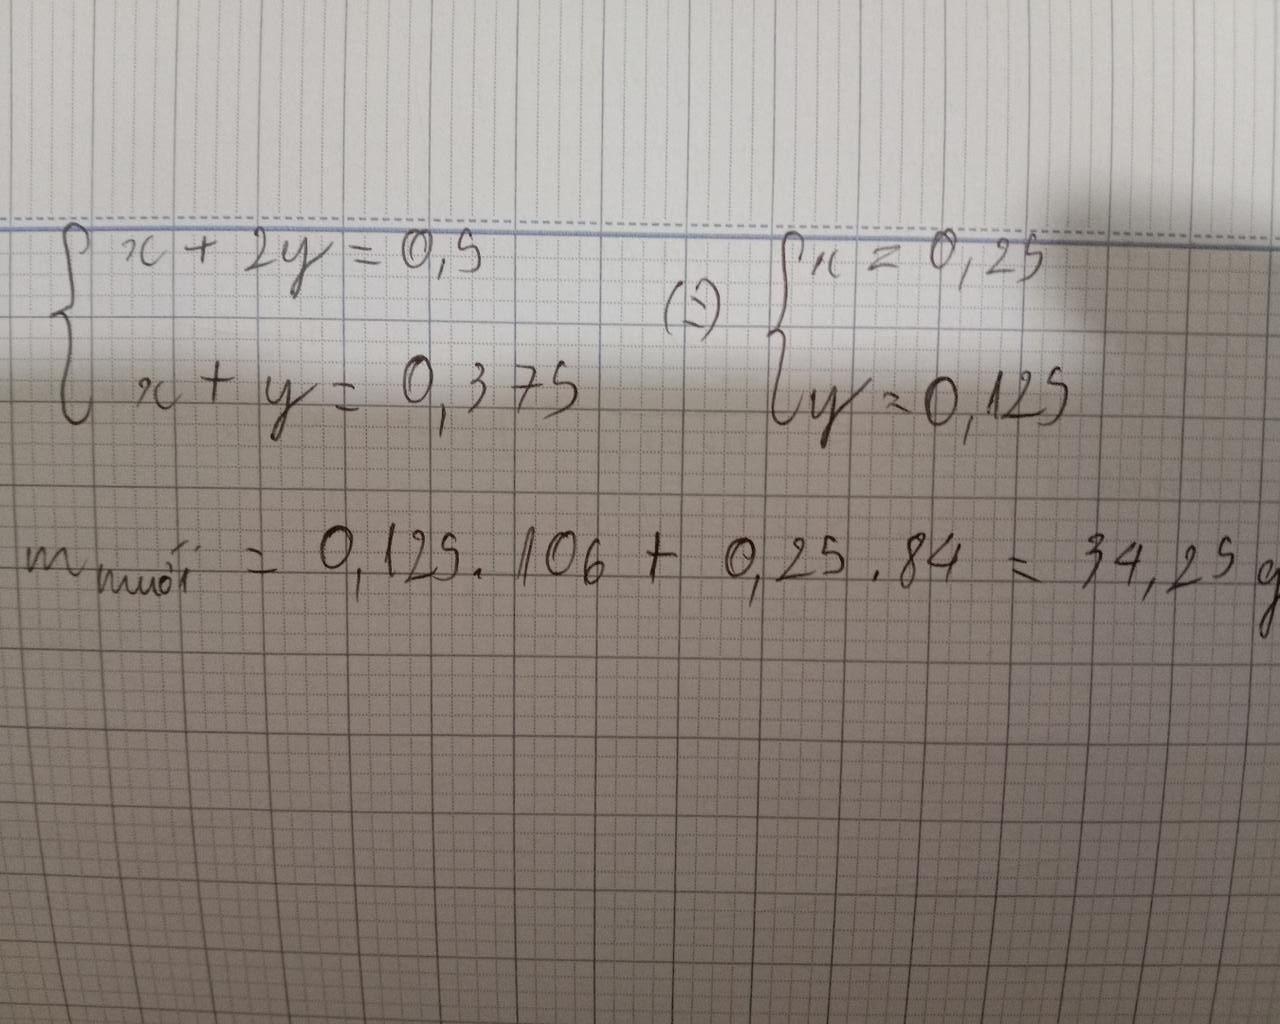 { x + 2y = 0,5 (=) { x = 0,25
x + y = 0,375 y = 0,125
m muối = 0,125 . 106 + 0,25 . 84 = 34,25 g